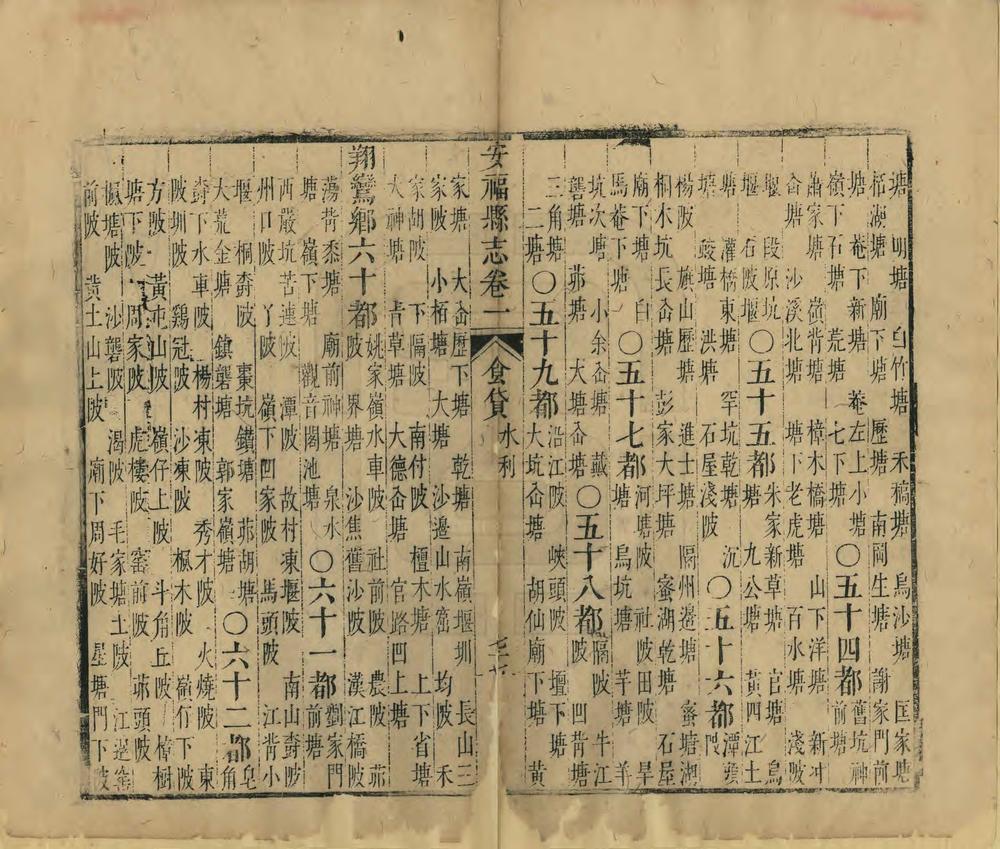 塘 明塘 白竹塘 禾稿塘 烏沙塘 匡家塘
栢湖塘 廟下塘 歷塘 南岡生塘 謝家門前
塘 菴下新塘 菴左上小塘〇五十四都舊坑神
嶺下石塘 荒塘 七下塘 前塘
蕭家塘 嶺背塘 樟木橋塘 山下洋塘 新冲
畬塘 沙溪北塘 塘下老虎塘 百水塘 淺陂
堰 段原坑〇五十五都朱家新草塘 官塘 烏
堰 石陂堰 塘 九公塘 黃四江土
塘 灌橋東塘 罕坑乾塘 沉〇五十六都潭頭
塘 陂塘 洪塘 石屋淺陂 門
楊陂 旗山歷塘 進士塘 隔州邊塘 蜜塘湖
相木坑 長畬塘 彭家大坪塘 蜜湖乾塘 石屋
廟下塘 白〇五十七都河塘陂 社陂田陂 旱
馬菴下塘 塘 烏坑塘 芋塘 羊
坑次塘 小余畬塘 藏〇五十八都隔陂 牛江
礱塘 茆塘 大塘畬塘 陂 凹背塘
三角塘〇五十九都沿江陂 峽頭陂 壇下塘
二塘 大坑畬塘 胡仙廟下塘 黃
安福縣志卷一 食貨 水利
家塘 大畬歷下塘 乾塘 南嶺堰圳 長山三
家陂 小栢塘 大塘 沙邊山水富 均陂 禾
家胡陂 下隔陂 南付陂 檀木塘 上下省塘
大神塘 青草塘 大德畬塘 官路凹上塘
翔鸞鄉六十都姚家嶺水車陂 社前陂 農陂 茆
陂 界塘 沙焦舊沙陂 漢江橋陂
蕩背黍塘 廟前神塘 泉水〇六十一都劉家門
塘 嶺下塘 觀音閣池塘 前塘
西嚴坑苦連陂 潭陂 故村東堰陂 南山壽陂
州口陂 丫陂 嶺下四家陂 馬頭陂 江背小
堰 桐壽陂 棗坑鐵塘 茆胡塘〇六十二都皂
大荒金塘 鎮礱塘 郭家嶺塘 角
壽下水車陂 楊村東陂 秀才陂 火燒陂 東
陂圳陂 鷄冠陂 沙東陂 楓木陂 嶺下陂
方陂 黃屯山陂 嶺仔上陂 斗角丘陂 樟樹
塘下陂 周家陂 虎樓陂 窑前陂 茆頭陂
楓塘陂 沙礱陂 渴陂 毛家塘土陂 江邊窑
前陂 黃土山上陂 廟下周好陂 星塘門下陂